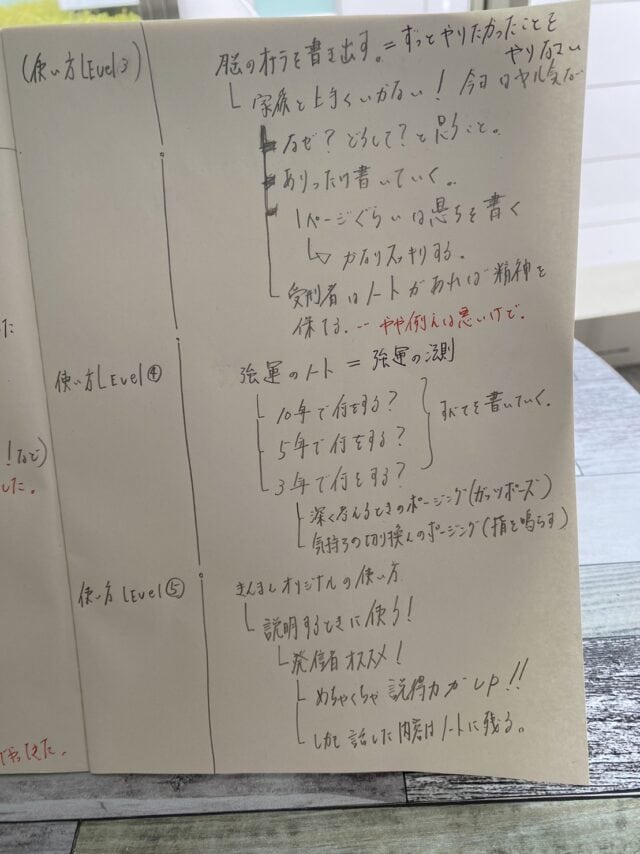 (使い方 LEvel 3)
脳のオナラを書き出す。= ずっとやりたかったことを
やりなさい
家族と上手くいかない! 今日はヤル気ない
なぜ?どうして?と思うこと。
ありったけ書いていく。
1ページぐらいは思ちを書く
かなりスッキリする。
受刑者はノートがあれば精神を
保てる。-- やや例えは悪いけど。
使い方 LEvel ④
強運のノート = 強運の法則
10年で何をする?
5年で何をする?
3年で何をする?
すべてを書いていく。
深く考えるときのポージング(ガッツポーズ)
気持ちの切り換えのポージング(指を鳴らす)
!など)
した。
使い方 LEvel ⑤
オリジナルの使い方
説明するときに使う!
発信者オススメ!
めちゃくちゃ説得力がUP!!
しかも話した内容はノートに残る。